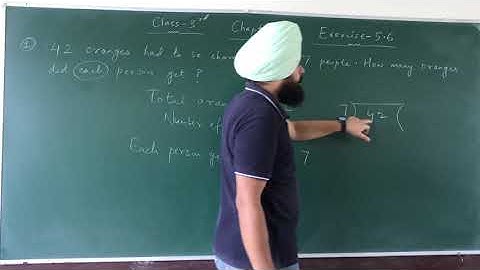 Class-3rd Chap Exercise-5.6
① 42 oranges had to be shar 7 people. How many oranges
did each person get ?
Total oran 7 42
Number of
Each person ge 7